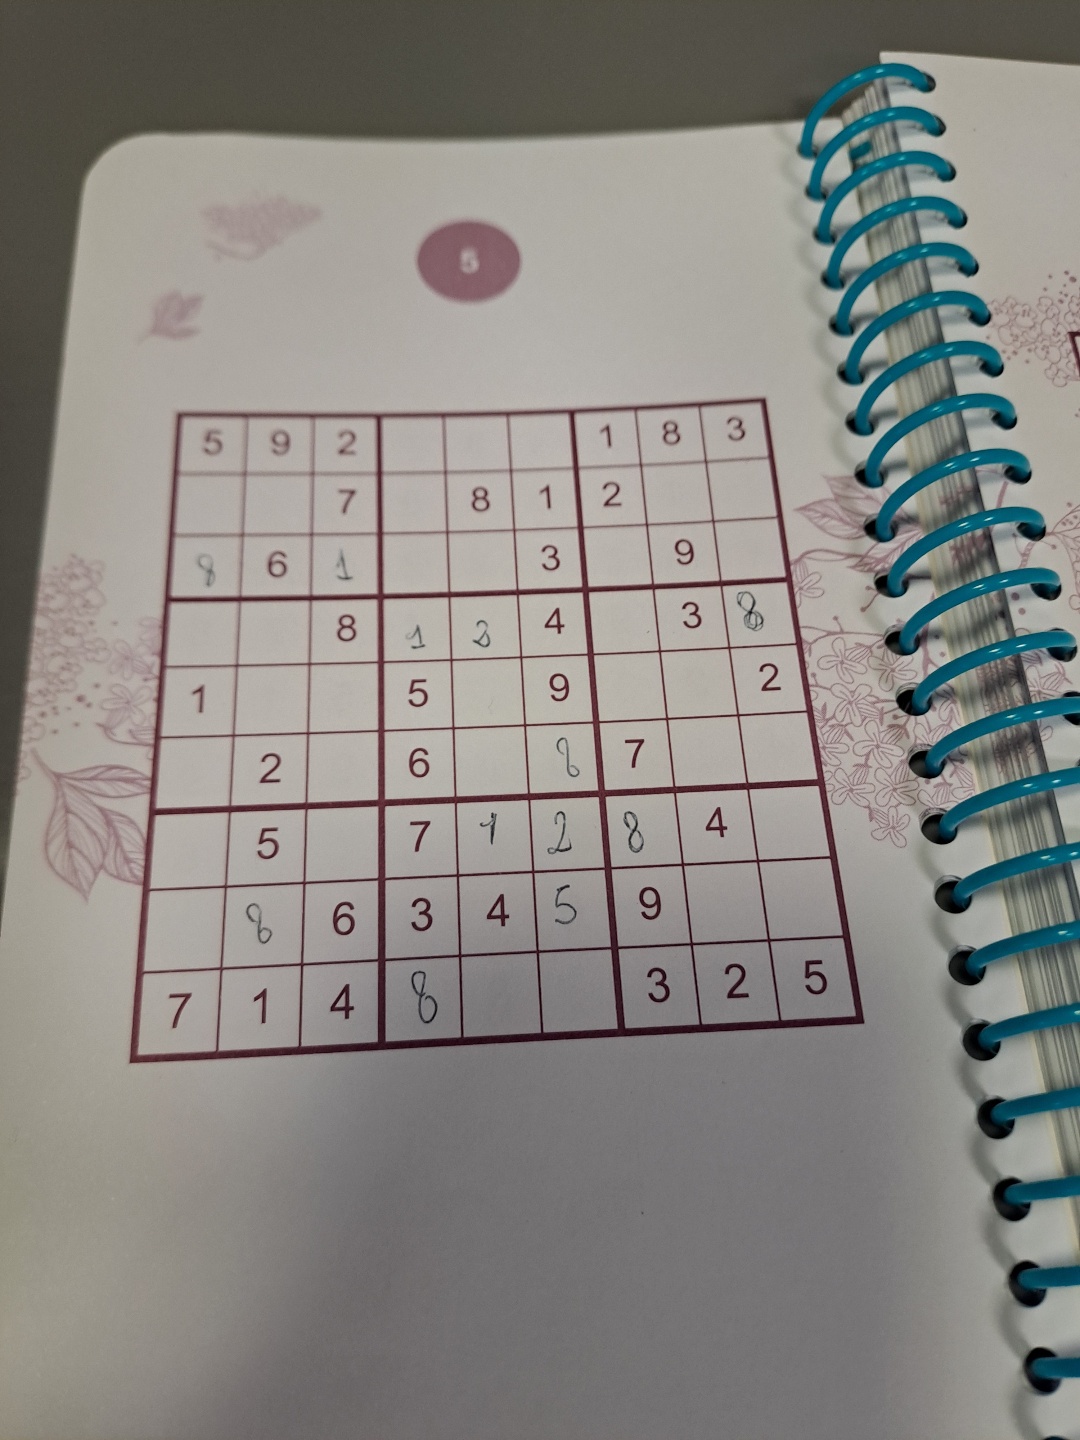 5
5 9 2 1 8 3
7 8 1 2
8 6 1 3 9
8 1 2 4 3 8
1 5 9 2
2 6 8 7
5 7 1 2 8 4
8 6 3 4 5 9
7 1 4 8 3 2 5